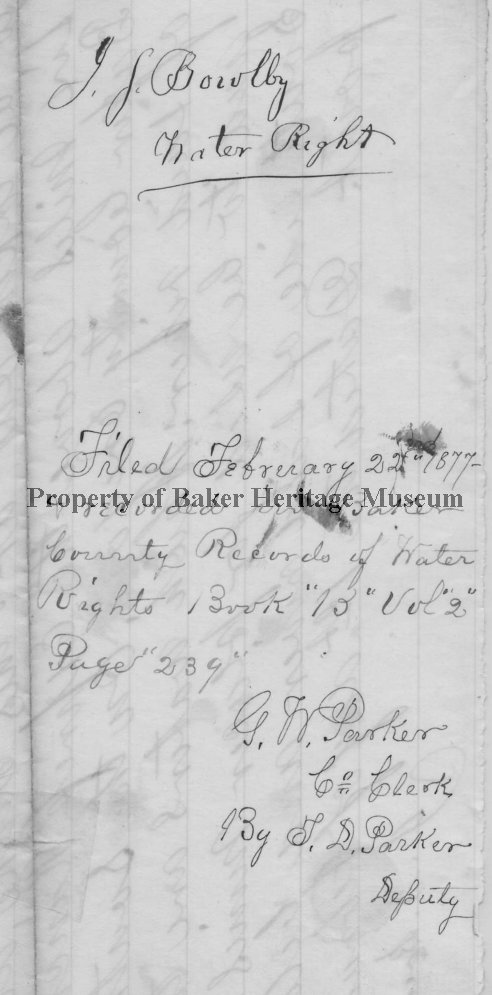 J. S. Bowlby
Water Right
Filed February 22nd 1877-
Property of Baker Heritage Museum
& recorded in Baker
County Records of Water
Rights Book "B" Vol "2"
Page "239"
G. W. Parker
Co Clerk
By T. D. Parker
Deputy